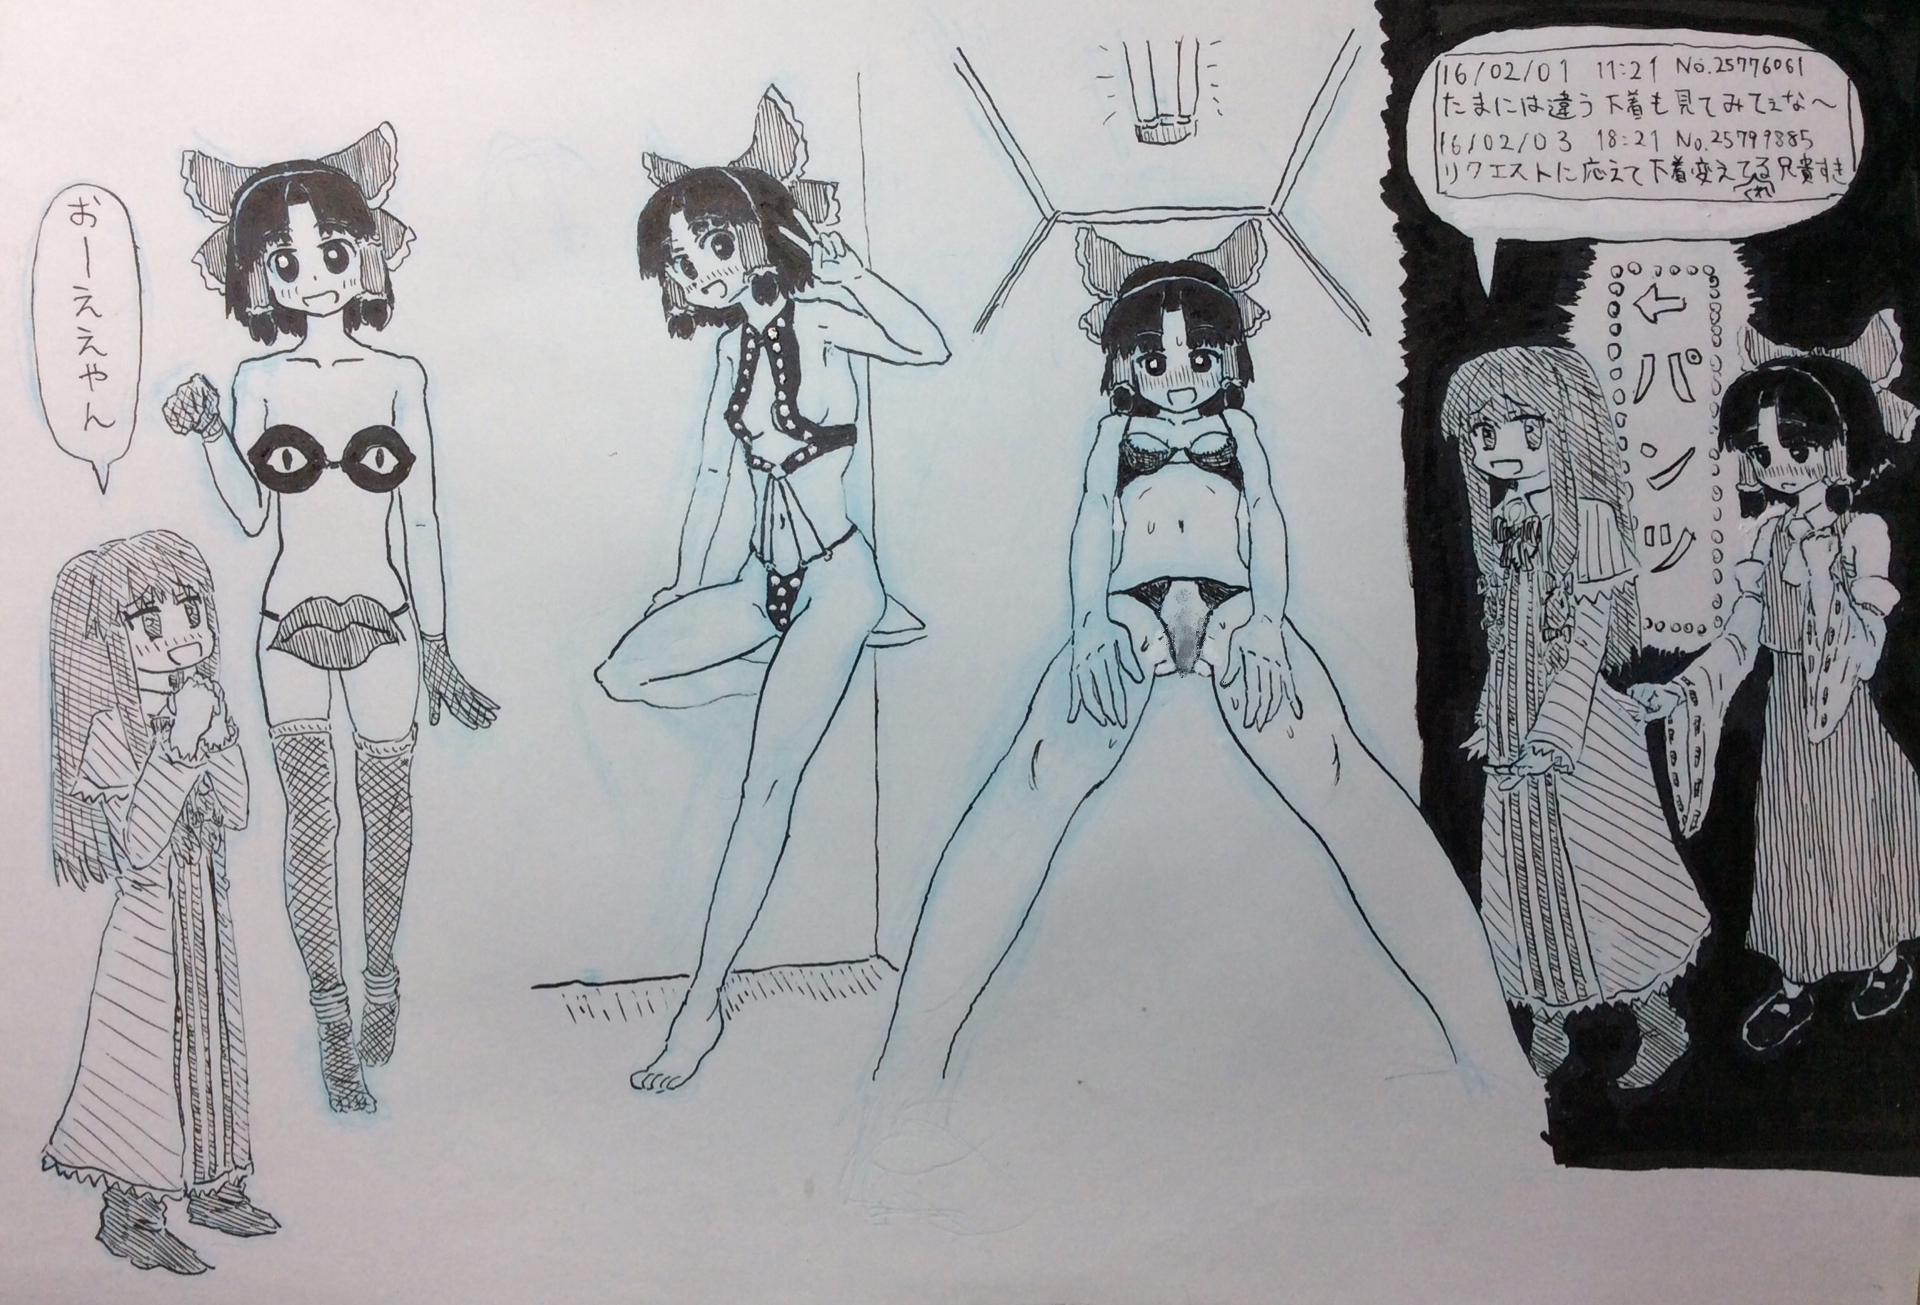 16/02/01 11:21 No.25776061
たまには違う下着も見てみてぇな～
16/02/03 18:21 No.25799885
リクエストに応えて下着変えてる兄貴すき
くれ
←パンツ
おーええやん